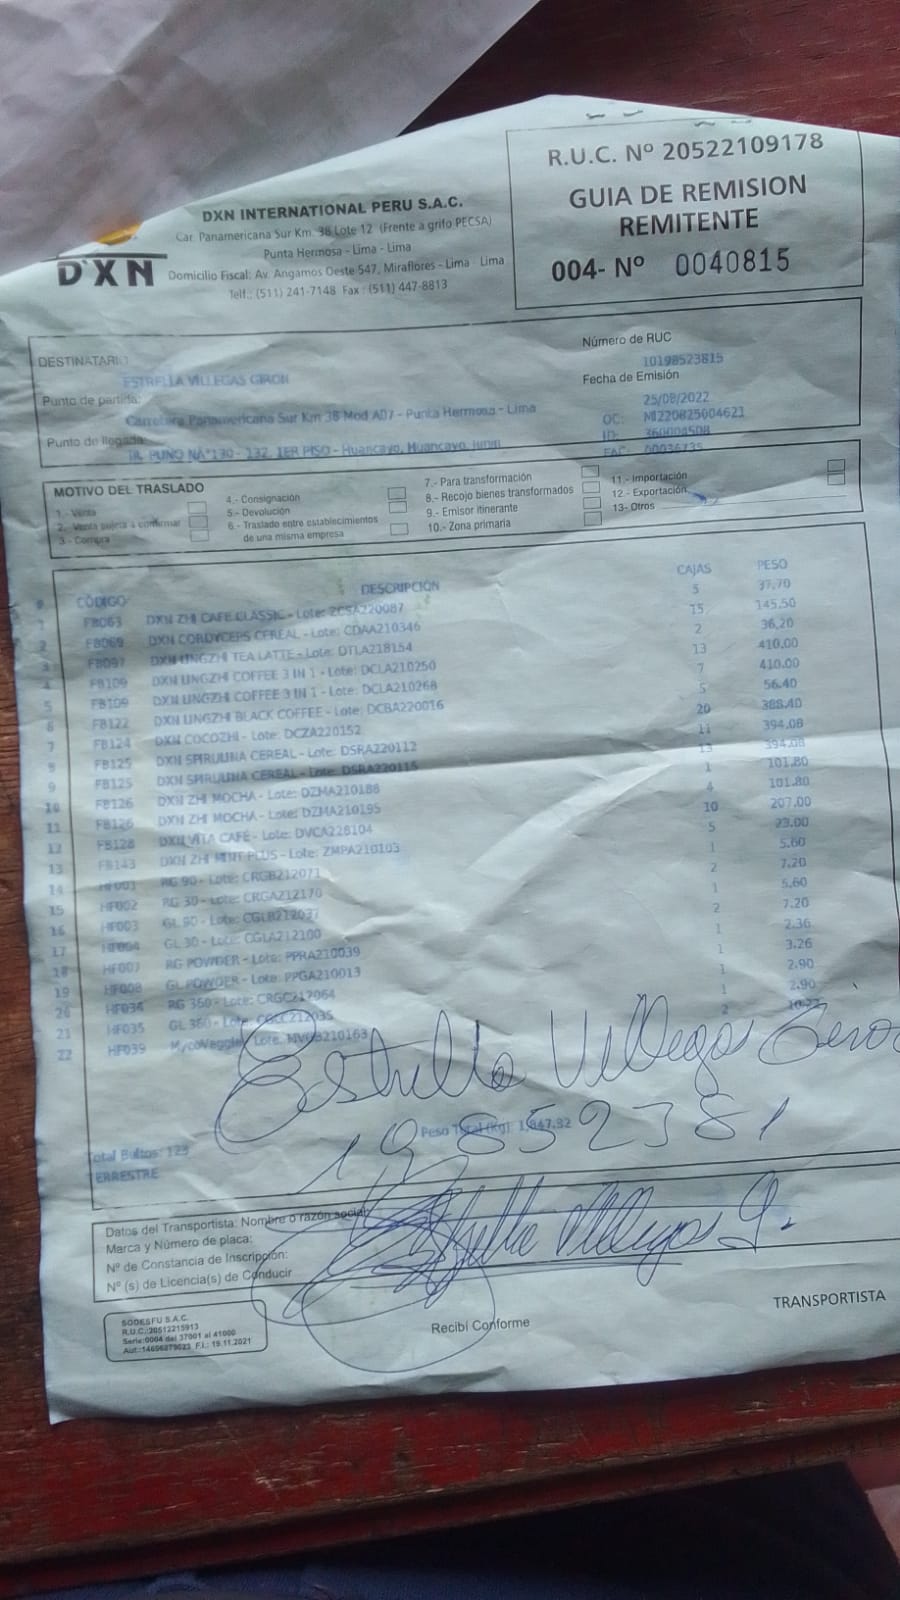 R.U.C. Nº 20522109178
GUIA DE REMISION
REMITENTE
004- Nº 0040815
DXN
DXN INTERNATIONAL PERU S.A.C.
Car. Panamericana Sur Km. 38 Lote 12 (Frente a grifo PECSA)
Punta Hermosa - Lima - Lima
Domicilio Fiscal: Av. Angamos Oeste 547, Miraflores - Lima - Lima
Telf.: (511) 241-7148 Fax : (511) 447-8813
DESTINATARIO
ESTRELLA VILLEGAS GIRON
Número de RUC
10198523815
Punto de partida:
Carretera Panamericana Sur Km 38 Mod A07 - Punta Hermosa - Lima
Fecha de Emisión
25/08/2022
Punto de llegada:
JR. PUNO NA°130 - 132, 1ER PISO - Huancayo, Huancayo, Junin
OC: MI220825004621
ID: 360004508
FAC: 00036735
MOTIVO DEL TRASLADO
1.- Venta
2.- Venta sujeta a confirmar
3.- Compra
4.- Consignación
5.- Devolución
6.- Traslado entre establecimientos
de una misma empresa
7.- Para transformación
8.- Recojo bienes transformados
9.- Emisor itinerante
10.- Zona primaria
11.- Importación
12.- Exportación
13.- Otros
# CÓDIGO DESCRIPCION CAJAS PESO
1 FB063 DXN ZHI CAFE CLASSIC - Lote: ZCSA220087 5 37.70
2 FB069 DXN CORDYCEPS CEREAL - Lote: CDAA210346 15 145.50
3 FB097 DXN LINGZHI TEA LATTE - Lote: DTLA218154 2 36.20
4 FB109 DXN LINGZHI COFFEE 3 IN 1 - Lote: DCLA210250 13 410.00
5 FB109 DXN LINGZHI COFFEE 3 IN 1 - Lote: DCLA210268 7 410.00
6 FB122 DXN LINGZHI BLACK COFFEE - Lote: DCBA220016 5 56.40
7 FB124 DXN COCOZHI - Lote: DCZA220152 20 388.40
8 FB125 DXN SPIRULINA CEREAL - Lote: DSRA220112 11 394.08
9 FB125 DXN SPIRULINA CEREAL - Lote: DSRA220115 13 394.08
10 FB126 DXN ZHI MOCHA - Lote: DZMA210188 1 101.80
11 FB126 DXN ZHI MOCHA - Lote: DZMA210195 4 101.80
12 FB128 DXN VITA CAFE - Lote: DVCA228104 10 207.00
13 FB143 DXN ZHI MINT PLUS - Lote: ZMPA210103 5 23.00
14 HF001 RG 90 - Lote: CRGB212071 1 5.60
15 HF002 RG 30 - Lote: CRGA212170 2 7.20
16 HF003 GL 90 - Lote: CGLB212037 1 5.60
17 HF004 GL 30 - Lote: CGLA212100 2 7.20
18 HF007 RG POWDER - Lote: PPRA210039 1 2.36
19 HF008 GL POWDER - Lote: PPGA210013 1 3.26
20 HF034 RG 360 - Lote: CRGC212064 1 2.90
21 HF035 GL 360 - Lote: CGLC212035 1 2.90
22 HF039 MycoVeggie Lote: MVGB210163 2
Estrella Villegas Giron
Peso Total (Kg):
19852381
Total Bultos: 123
TERRESTRE
Datos del Transportista: Nombre o razón social:
Marca y Número de placa:
Nº de Constancia de Inscripción:
Nº (s) de Licencia(s) de Conducir
Estrella Villegas G.
SODESFU S.A.C.
R.U.C.:20512215913
Serie:0004 del 37001 al 41000
Aut.:14656879023 F.I.: 19.11.2021
Recibí Conforme
TRANSPORTISTA